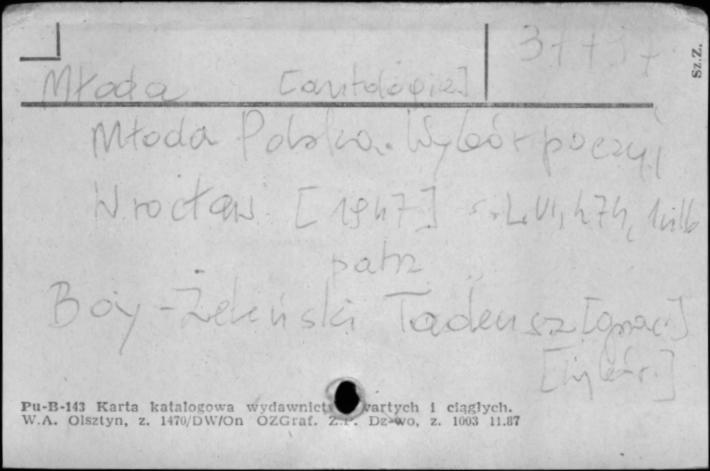 37737
Sz.Z.
Młoda [antologie]
Młoda Polska. Wybór poezyj
Wrocław [1947] s. LVI, 474, 1 nlb
patrz
Boy-Żeleński Tadeusz [oprac.]
[Wybór.]
Pu-B-143 Karta katalogowa wydawnictw zwartych i ciągłych.
W.A. Olsztyn, z. 1470/DW/On OZGraf. Z.P. Dz-wo, z. 1003 11.87